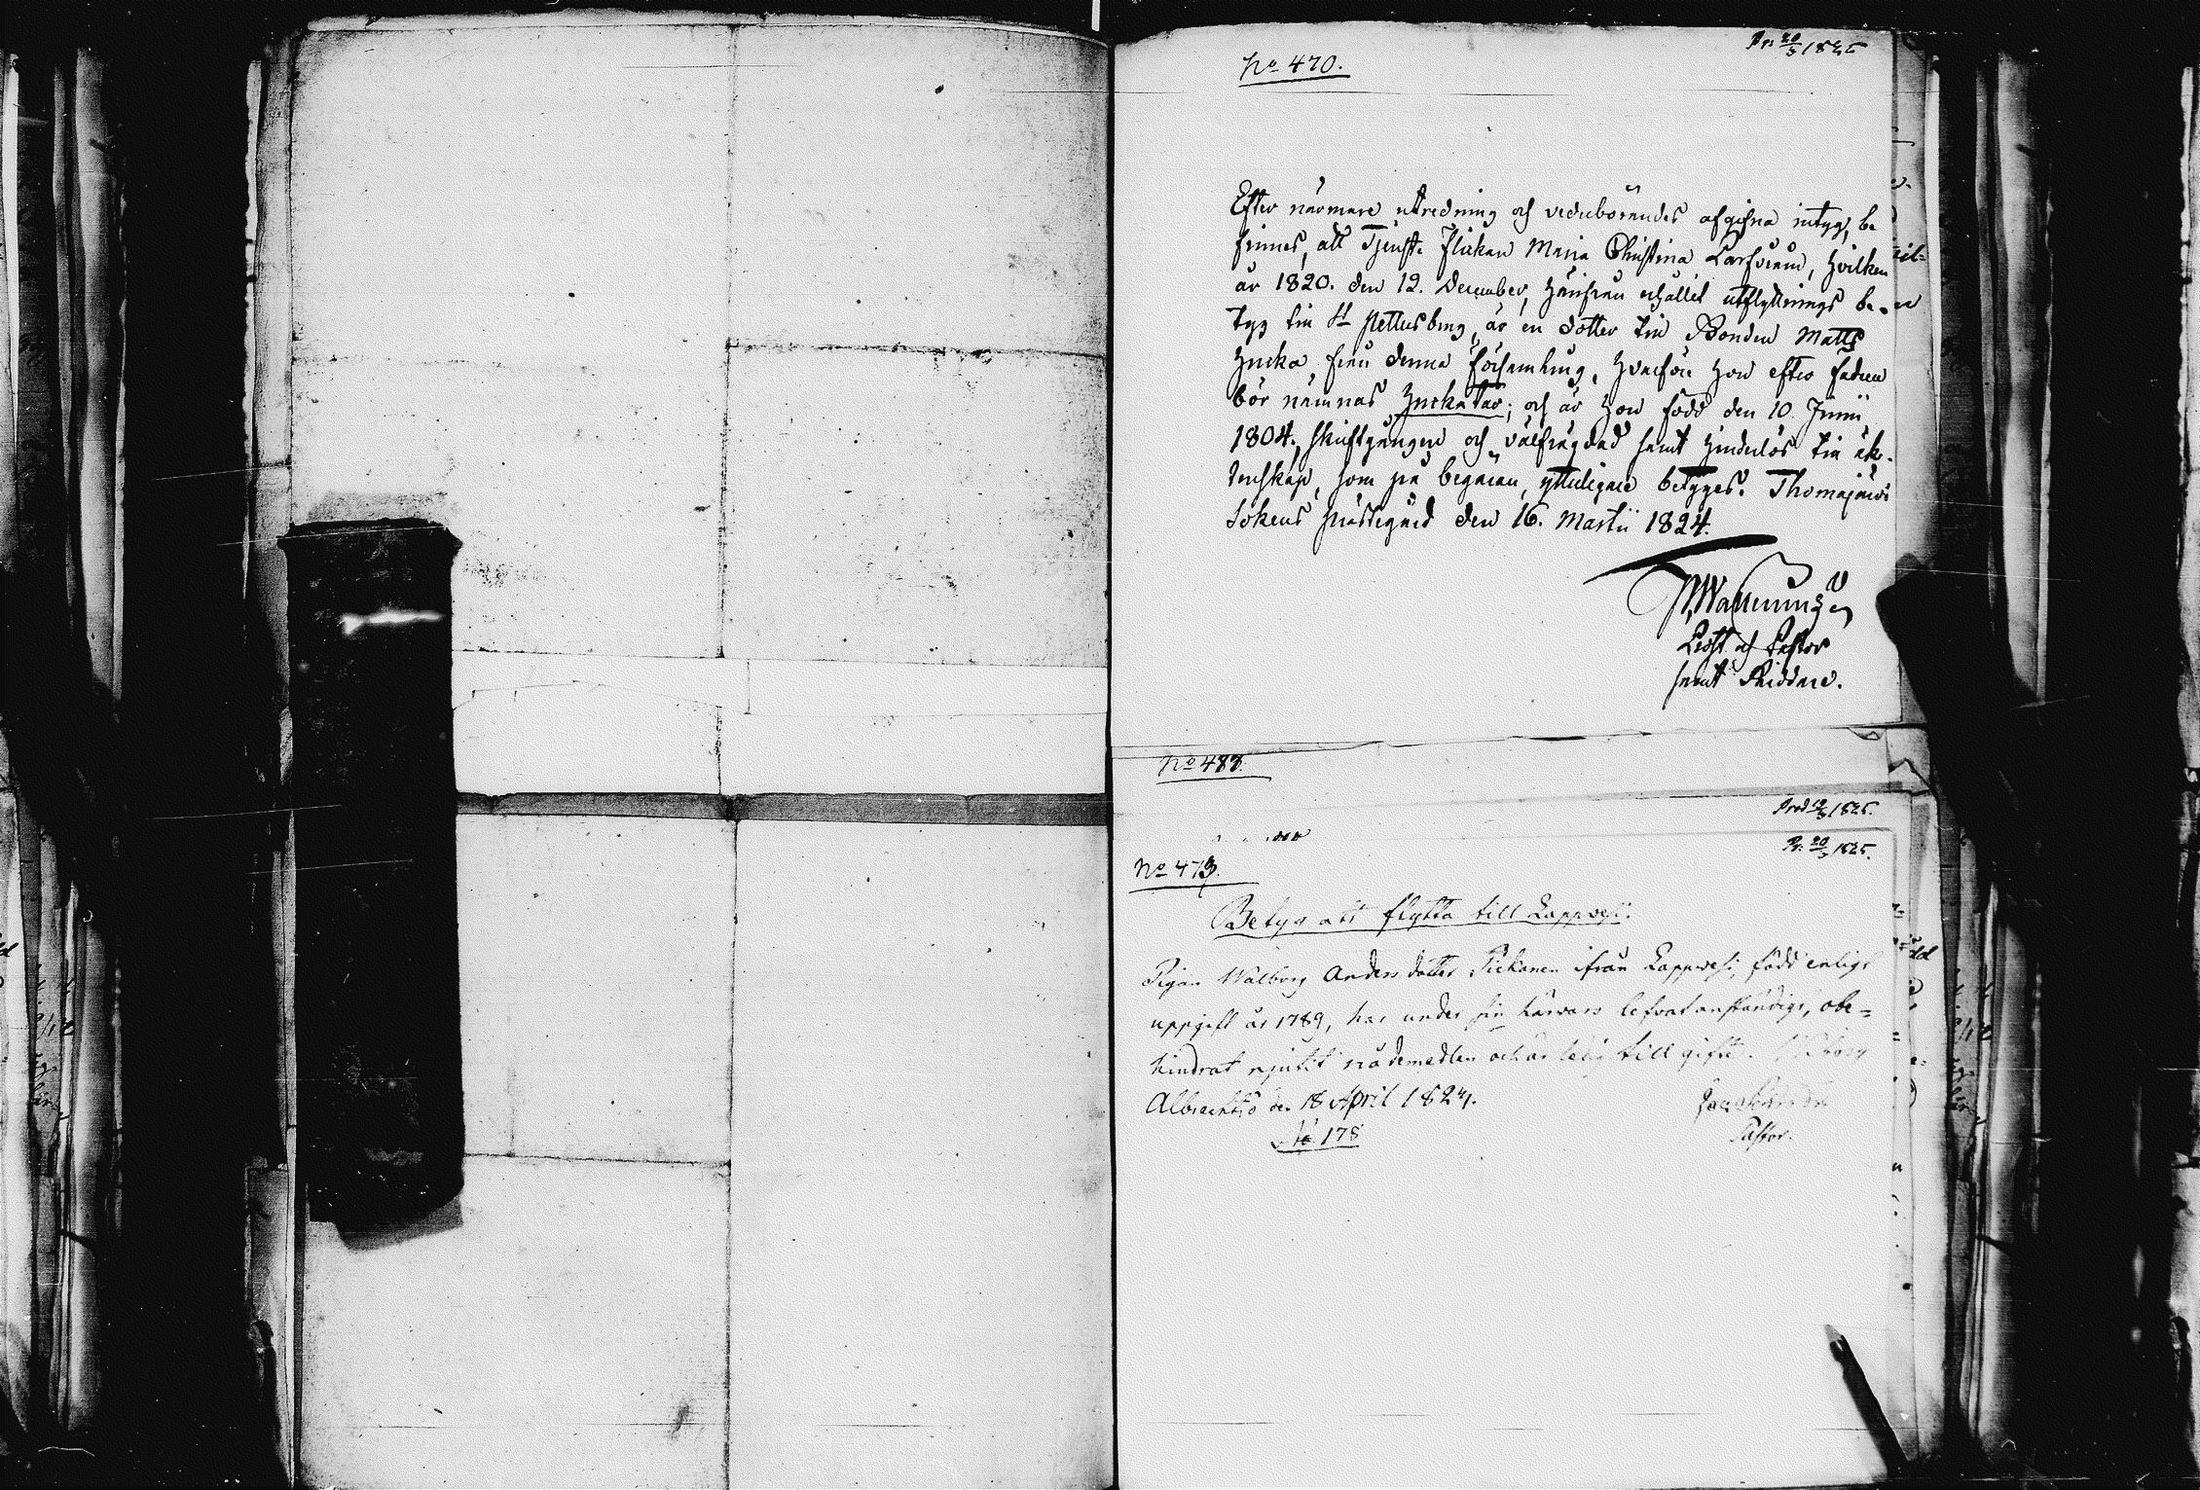 No 470.
Pr: 20/3 1825
Efter närmare utredning och vederbörandes afgifna intyg, be
finnes, att Tjenste Flickan Maria Christina Larsdotter, hvilken
år 1820. den 12. December, härifrån erhållit utflyttnings be-
tyg till St Pettersburg, är en dotter till Bonden Matts
Hucka, från denna församling, hvarföre hon efter fadren
bör nämnas Huckatar; och är hon född den 10. Junii
1804; skriftgången och välfrägdad samt hinderlös till äk-
tenskap, som på begäran, ytterligare betyges. Thomajärvi
Sokens Prästegård den 16. Martii 1824.
Prost och Pastor
samt Riddare.
No 488.
Prod 1825.
Pr. 20/3 1825.
No 473.
Betyg att flytta till Lappvesi.
Pigan Walborg Anders dotter Pickanen ifrån Lappvesi, född enligt
uppgift år 1789, har under sin härvaro lefvat anständigt, obe=
hindrat njutit nådemedlen och är ledig till gifte. Wiborg
den 18 April 1824.
Pastor.
No 178